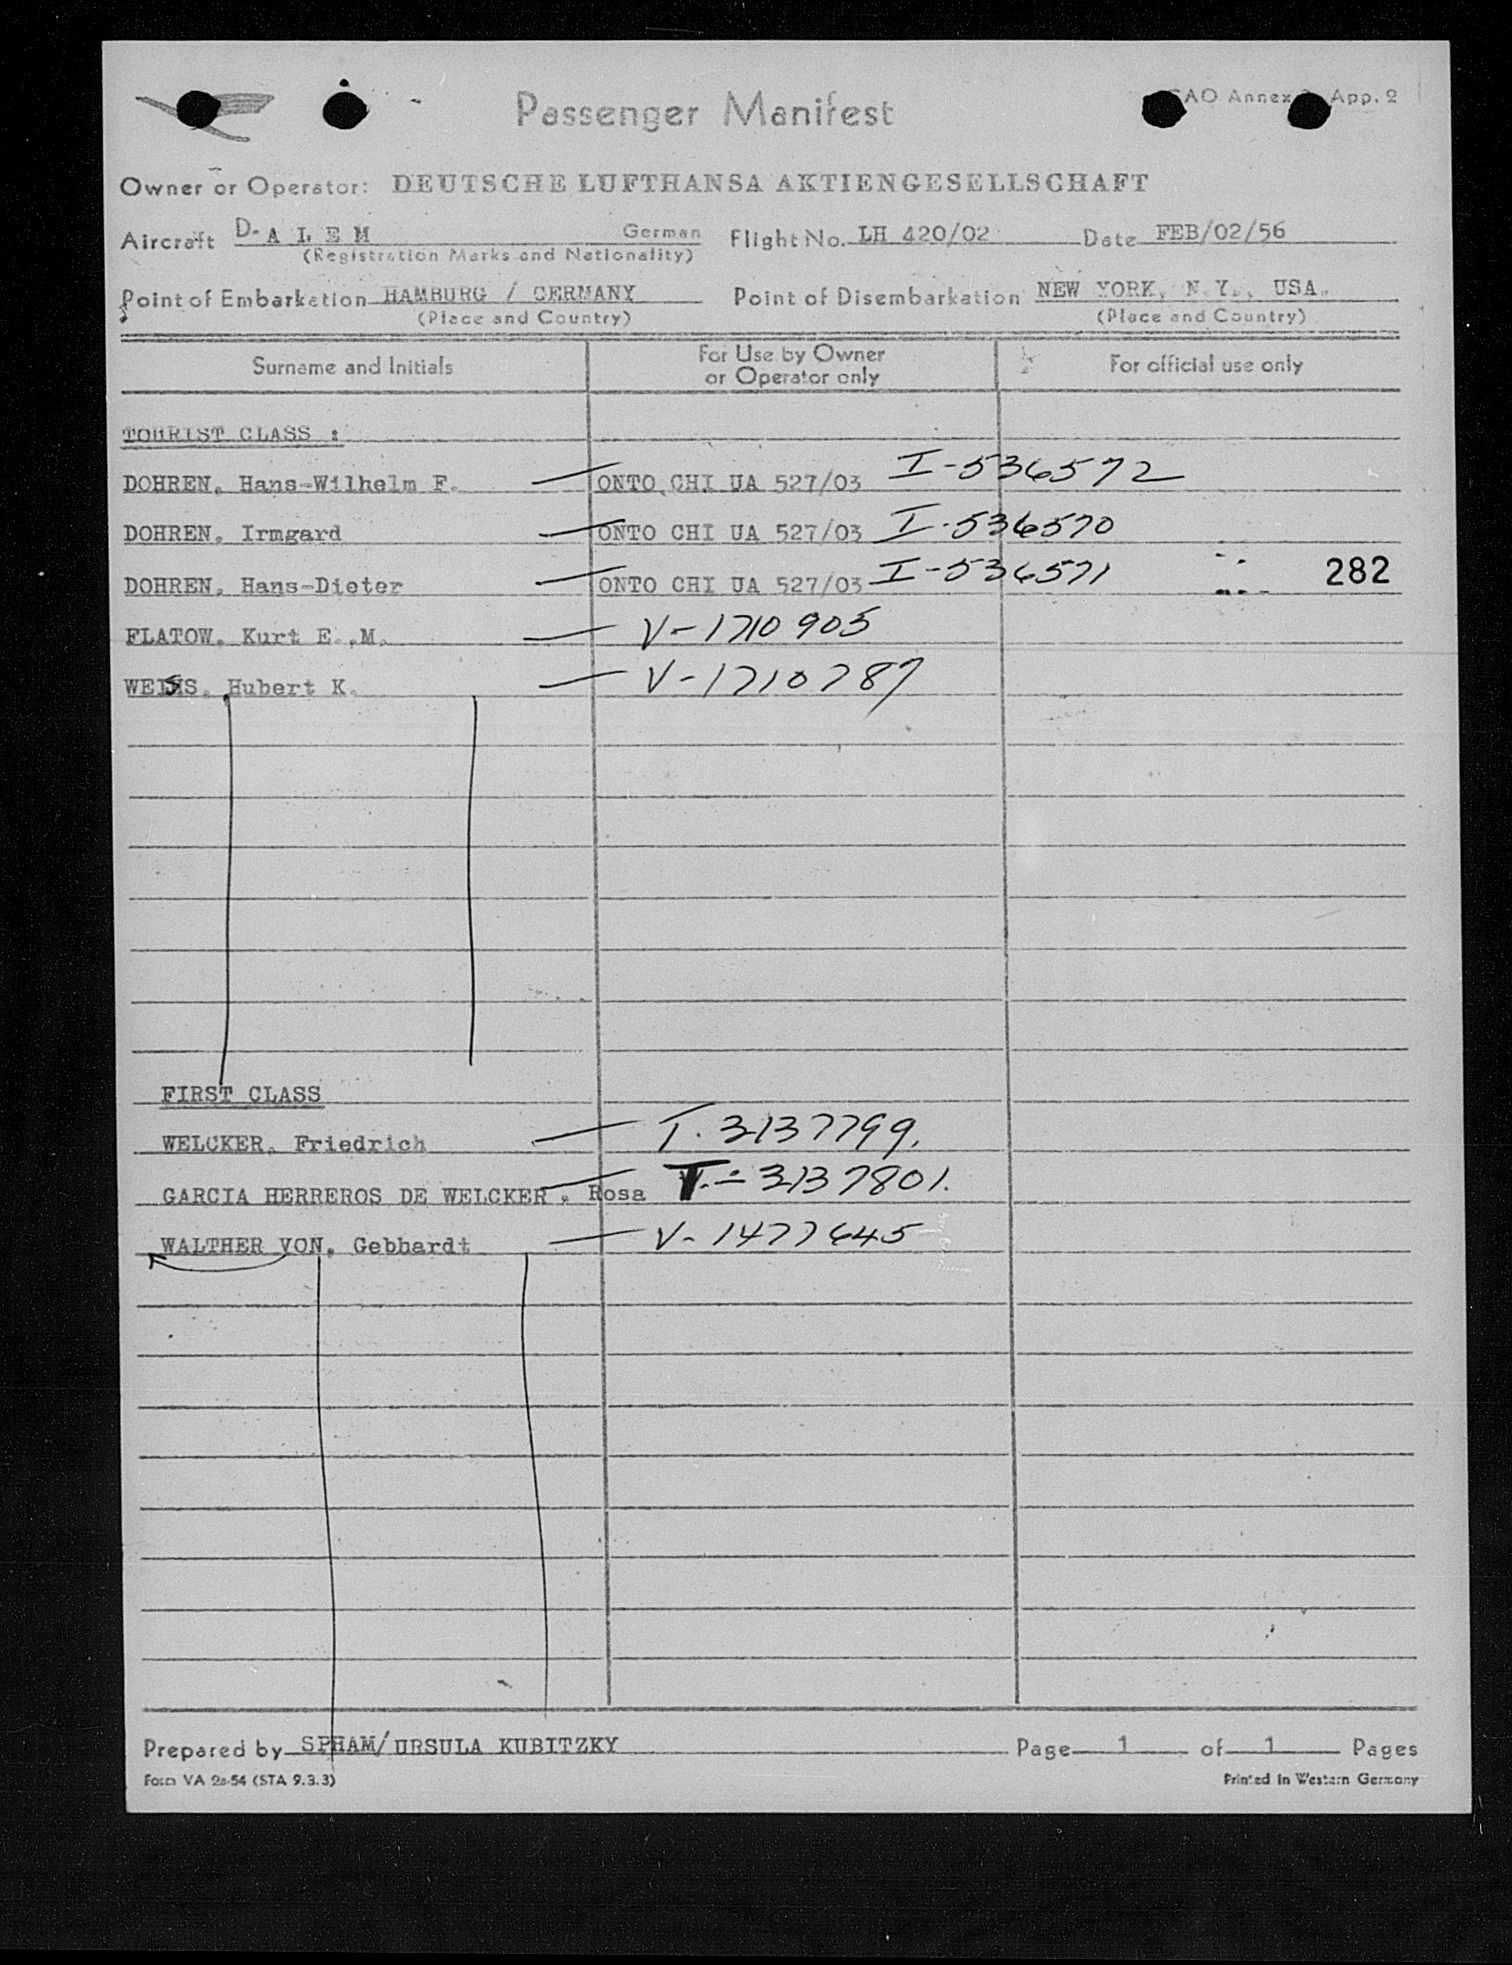 Passenger Manifest
App. 2
Owner or Operator: DEUTSCHE LUFTHANSA AKTIENGESELLSCHAFT
Aircraft D-ALEM German Flight No. LH 420/02 Date FEB/02/56
(Registration Marks and Nationality)
Point of Embarkation HAMBURG / GERMANY Point of Disembarkation NEW YORK, N.Y., USA.
(Place and Country) (Place and Country)
Surname and Initials For Use by Owner or Operator only For official use only
TOURIST CLASS :
DOHREN, Hans-Wilhelm F. ONTO CHI UA 527/03 I-536572
DOHREN, Irmgard ONTO CHI UA 527/03 I-536570
DOHREN, Hans-Dieter ONTO CHI UA 527/03 I-536571 282
FLATOW, Kurt E.,M. V-1710905
Hubert K. V-1710787
FIRST CLASS
WELCKER, Friedrich T. 3137799.
GARCIA HERREROS DE WELCKER, Rosa T.-3137801.
WALTHER VON, Gebhardt V-1477645
Prepared by SPHAM/URSULA KUBITZKY Page 1 of 1 Pages
Form VA 2a-54 (STA 9.3.3) Printed in Western Germany